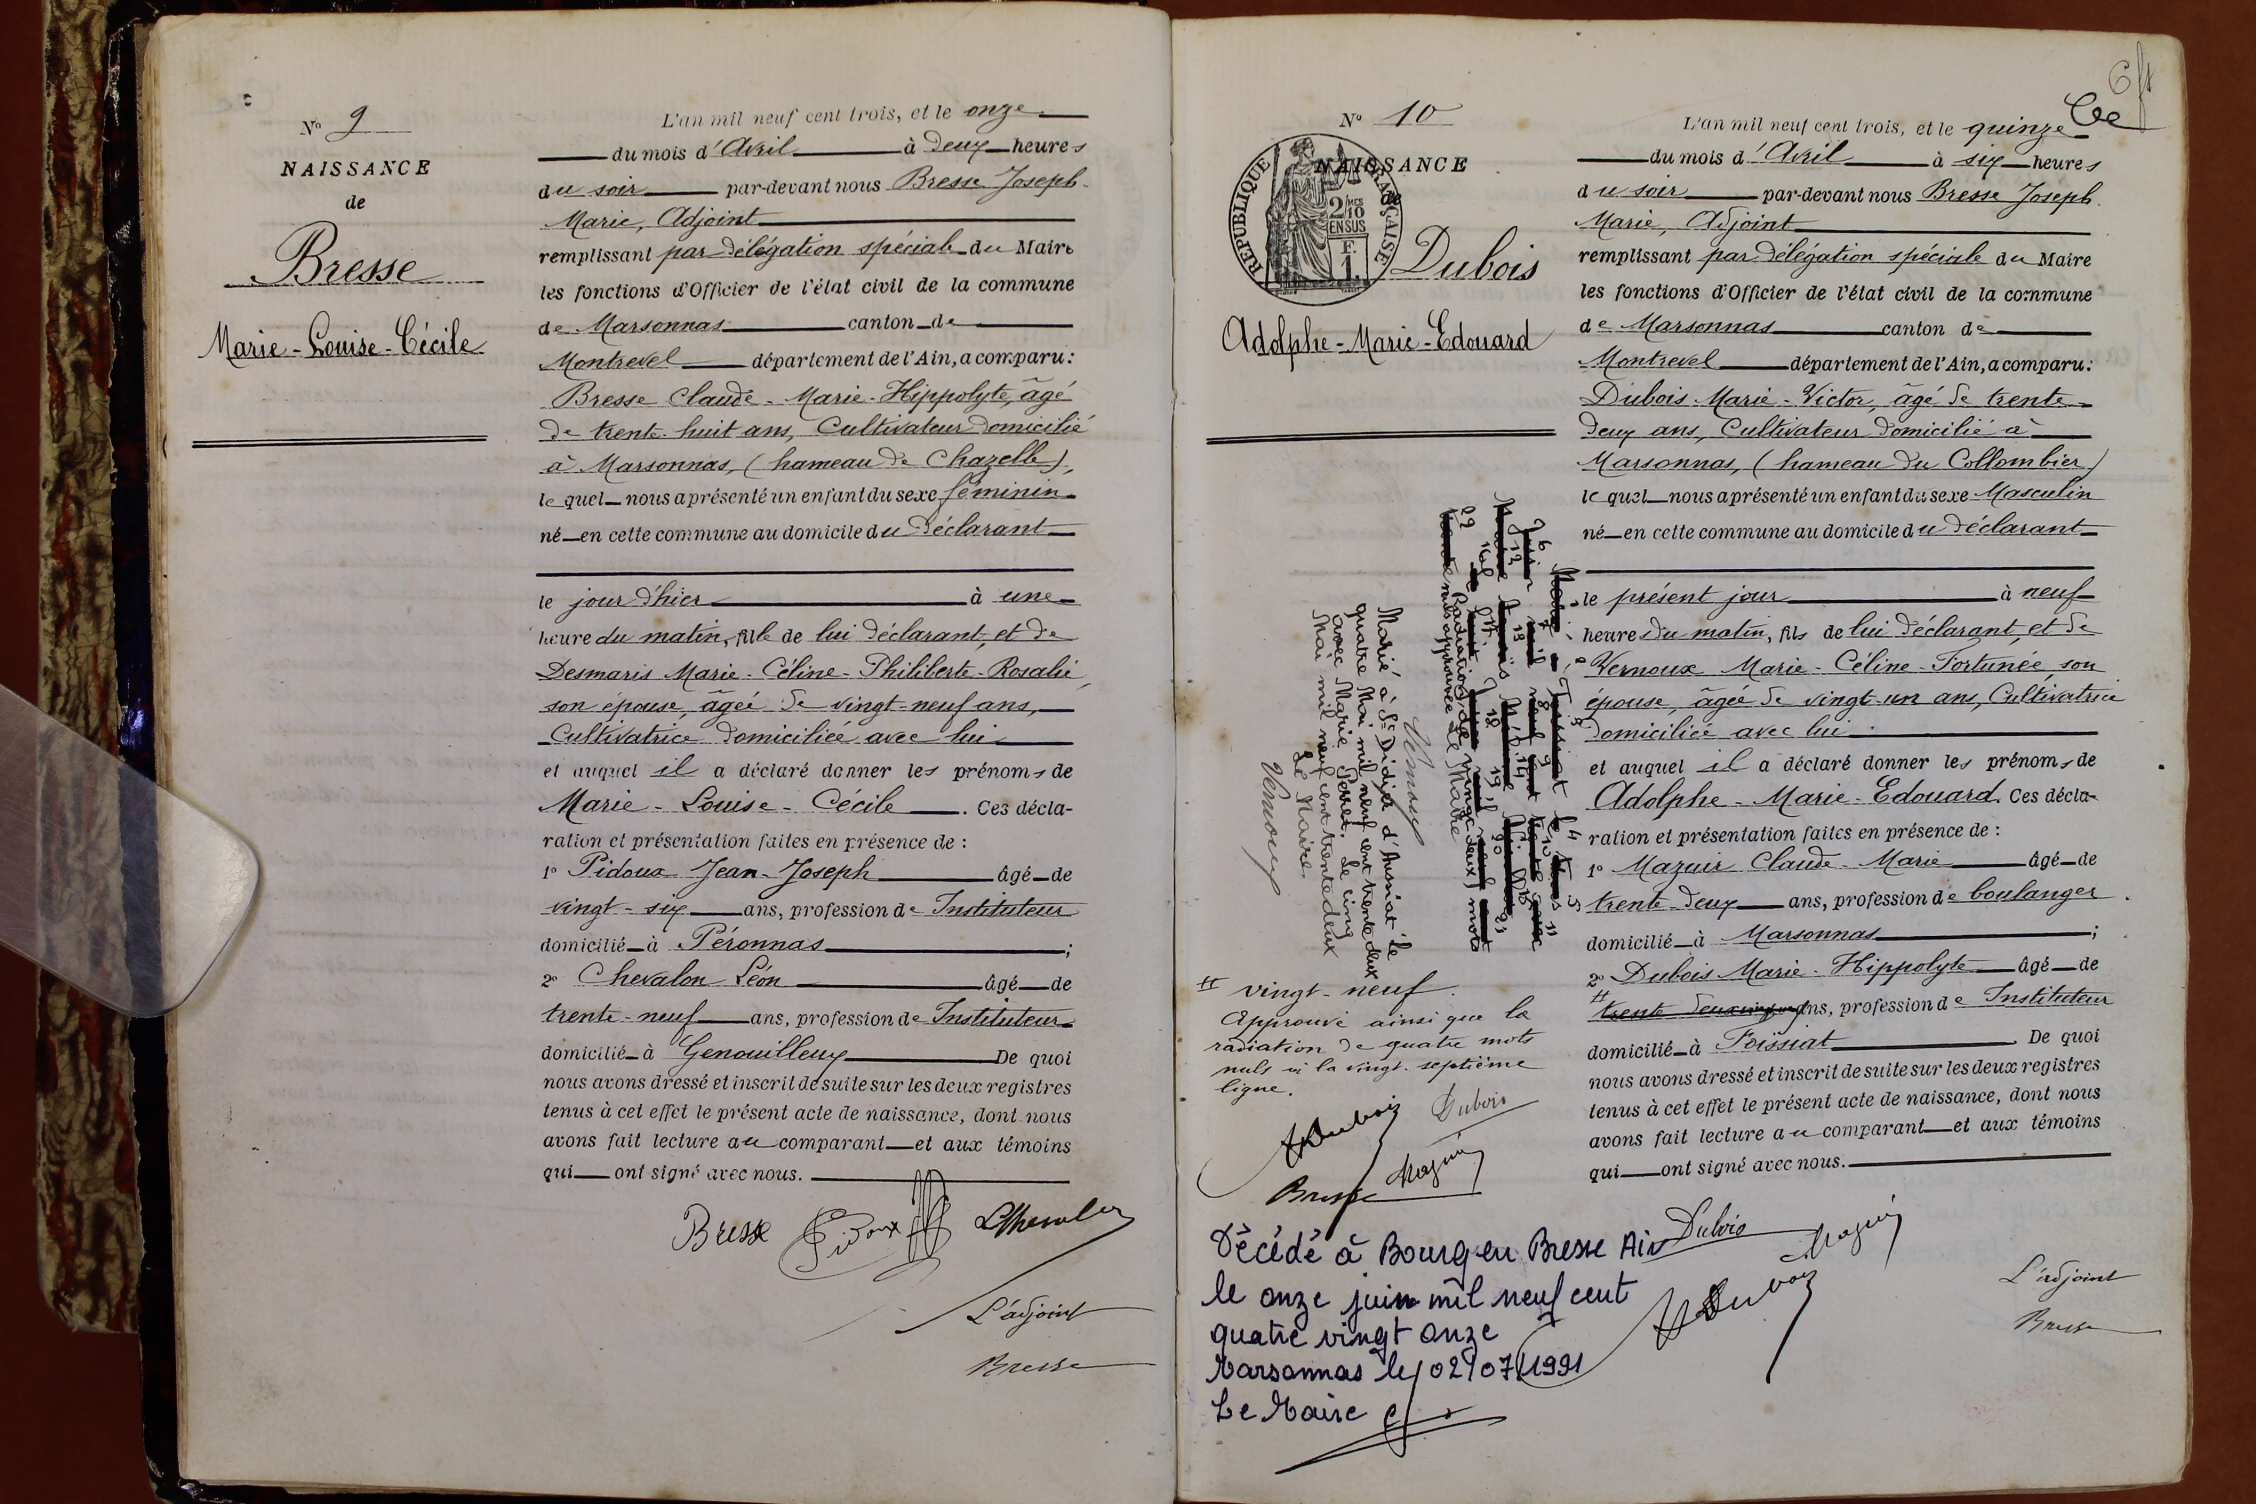 N° 9
NAISSANCE
de
Bresse
Marie-Louise-Cécile
L'an mil neuf cent trois, et le onze
du mois d'Avril à deux heures
du soir par-devant nous Bresse Joseph-
Marie, Adjoint
remplissant par délégation spéciale du Maire
les fonctions d'Officier de l'état civil de la commune
de Marsonnas canton de
Montrevel département de l'Ain, a comparu:
Bresse Claude-Marie-Hippolyte, âgé
de trente-huit ans, Cultivateur domicilié
à Marsonnas, (hameau de Chazelle),
lequel nous a présenté un enfant du sexe féminin
né en cette commune au domicile du déclarant
le jour d'hier à une
heure du matin, fille de lui déclarant, et de
Desmaris Marie-Céline-Philiberte-Rosalie,
son épouse, âgée de vingt-neuf ans,
Cultivatrice domiciliée avec lui
et auquel il a déclaré donner les prénoms de
Marie-Louise-Cécile. Ces décla-
ration et présentation faites en présence de :
1° Pidoux Jean-Joseph âgé de
vingt-six ans, profession de Instituteur
domicilié à Péronnas ;
2° Chevalon Léon âgé de
trente-neuf ans, profession de Instituteur
domicilié à Genouilleux De quoi
nous avons dressé et inscrit de suite sur les deux registres
tenus à cet effet le présent acte de naissance, dont nous
avons fait lecture au comparant et aux témoins
qui ont signé avec nous.
Bresse Pidoux LChevalon
L'adjoint
Bresse
N° 10
NAISSANCE
de
REPUBLIQUE FRANÇAISE
2/10 MES
EN SUS
1 F.
Dubois
Adolphe-Marie-Edouard
L'an mil neuf cent trois, et le quinze
du mois d'Avril à six heures
du soir par-devant nous Bresse Joseph-
Marie, Adjoint
remplissant par délégation spéciale du Maire
les fonctions d'Officier de l'état civil de la commune
de Marsonnas canton de
Montrevel département de l'Ain, a comparu:
Dubois Marie-Victor, âgé de trente-
deux ans, Cultivateur domicilié à
Marsonnas, (hameau du Collombier)
lequel nous a présenté un enfant du sexe Masculin
né en cette commune au domicile du déclarant
le présent jour à neuf
heures du matin, fils de lui déclarant, et de
Vernoux Marie-Céline-Fortunée, son
épouse, âgée de vingt-un ans, Cultivatrice
domiciliée avec lui
et auquel il a déclaré donner les prénoms de
Adolphe-Marie-Edouard. Ces décla-
ration et présentation faites en présence de :
1° Mazuir Claude-Marie âgé de
trente-deux ans, profession de boulanger
domicilié à Marsonnas ;
2° Dubois Marie-Hippolyte âgé de
trente deux ans, profession de Instituteur
domicilié à Foissiat De quoi
nous avons dressé et inscrit de suite sur les deux registres
tenus à cet effet le présent acte de naissance, dont nous
avons fait lecture au comparant et aux témoins
qui ont signé avec nous.
Dubois Mazuir
HDubois
L'adjoint
Bresse
Radiation de vingt deux mots
nuls approuvée Le Maire
Vernoux
Marié à St Didier d'Aussiat le
quatre Mai mil neuf cent trente deux
avec Marie Perret. Le cinq
Mai mil neuf cent trente deux
Le Maire.
Vernoux
vingt-neuf.
Approuvé ainsi que la
radiation de quatre mots
nuls à la vingt-septième
ligne.
HDubois Dubois
Bresse Mazuir
Décédé à Bourg en Bresse Ain
le onze juin mil neuf cent
quatre vingt onze
Marsonnas le 02/07/1991
Le Maire